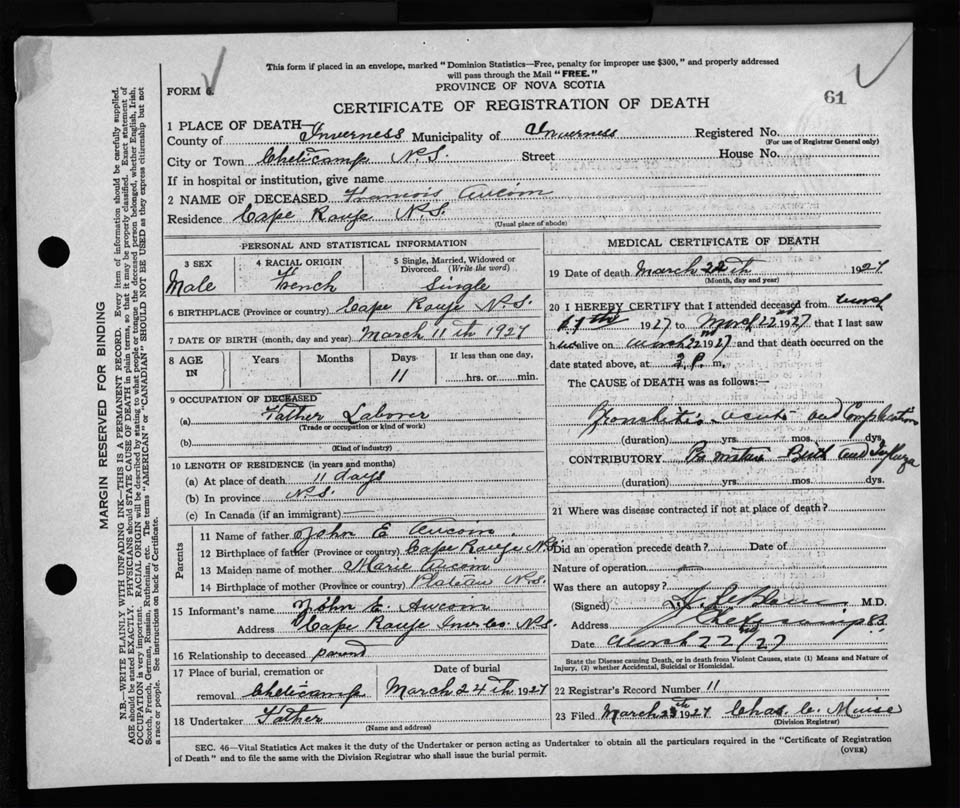 This form if placed in an envelope, marked "Dominion Statistics—Free, penalty for improper use $300," and properly addressed
will pass through the Mail "FREE."
FORM 6.
PROVINCE OF NOVA SCOTIA
CERTIFICATE OF REGISTRATION OF DEATH
61
1 PLACE OF DEATH—
County of Inverness Municipality of Inverness Registered No.
(For use of Registrar General only)
City or Town Cheticamp N.S. Street House No.
If in hospital or institution, give name
2 NAME OF DECEASED Francois Aucoin
Residence Cape Rouge N.S.
(Usual place of abode)
PERSONAL AND STATISTICAL INFORMATION
3 SEX Male
4 RACIAL ORIGIN French
5 Single, Married, Widowed or Divorced. (Write the word) Single
6 BIRTHPLACE (Province or country) Cape Rouge N.S.
7 DATE OF BIRTH (month, day and year) March 11th 1927
8 AGE IN Years Months Days 11 If less than one day, hrs. or min.
9 OCCUPATION OF DECEASED
(a) Father Laborer
(Trade or occupation or kind of work)
(b)
(Kind of industry)
10 LENGTH OF RESIDENCE (in years and months)
(a) At place of death 11 days
(b) In province N.S.
(c) In Canada (if an immigrant)
Parents
11 Name of father John E Aucoin
12 Birthplace of father (Province or country) Cape Rouge N.S.
13 Maiden name of mother Marie Aucoin
14 Birthplace of mother (Province or country) Plateau N.S.
15 Informant's name John E. Aucoin
Address Cape Rouge Inver Co. N.S.
16 Relationship to deceased parent
17 Place of burial, cremation or removal Cheticamp Date of burial March 24th 1927
18 Undertaker Father
(Name and address)
MEDICAL CERTIFICATE OF DEATH
19 Date of death March 22th 1927
(Month, day and year)
20 I HEREBY CERTIFY that I attended deceased from March
11th 1927 to March 22nd 1927 that I last saw
h alive on March 22nd 1927 and that death occurred on the
date stated above, at 3 P. m.
The CAUSE of DEATH was as follows:—
acute and Complications
(duration) yrs. mos. dys.
CONTRIBUTORY Premature Birth and Influenza
(duration) yrs. mos. dys.
21 Where was disease contracted if not at place of death?
Did an operation precede death? Date of
Nature of operation
Was there an autopsy?
(Signed) LeBlanc, M.D.
Address Cheticamp
Date March 22nd /27
State the Disease causing Death, or in death from Violent Causes, state (1) Means and Nature of
Injury, (2) whether Accidental, Suicidal or Homicidal.
22 Registrar's Record Number 11
23 Filed March 1927 Chas. C. Muise
(Division Registrar)
SEC. 46—Vital Statistics Act makes it the duty of the Undertaker or person acting as Undertaker to obtain all the particulars required in the "Certificate of Registration
of Death" and to file the same with the Division Registrar who shall issue the burial permit.
(OVER)
MARGIN RESERVED FOR BINDING
N.B.—WRITE PLAINLY WITH UNFADING INK—THIS IS A PERMANENT RECORD. Every item of information should be carefully supplied.
AGE should be stated EXACTLY. PHYSICIANS should STATE CAUSE OF DEATH in plain terms, so that it may be properly classified. Exact statement of
OCCUPATION is very important. RACIAL ORIGIN will be described by stating to what people or tongue the deceased person belonged, whether English, Irish,
Scotch, French, German, Russian, Ruthenian, etc. The terms "AMERICAN" or "CANADIAN" SHOULD NOT BE USED as they express citizenship but not
a race or people. See instructions on back of Certificate.